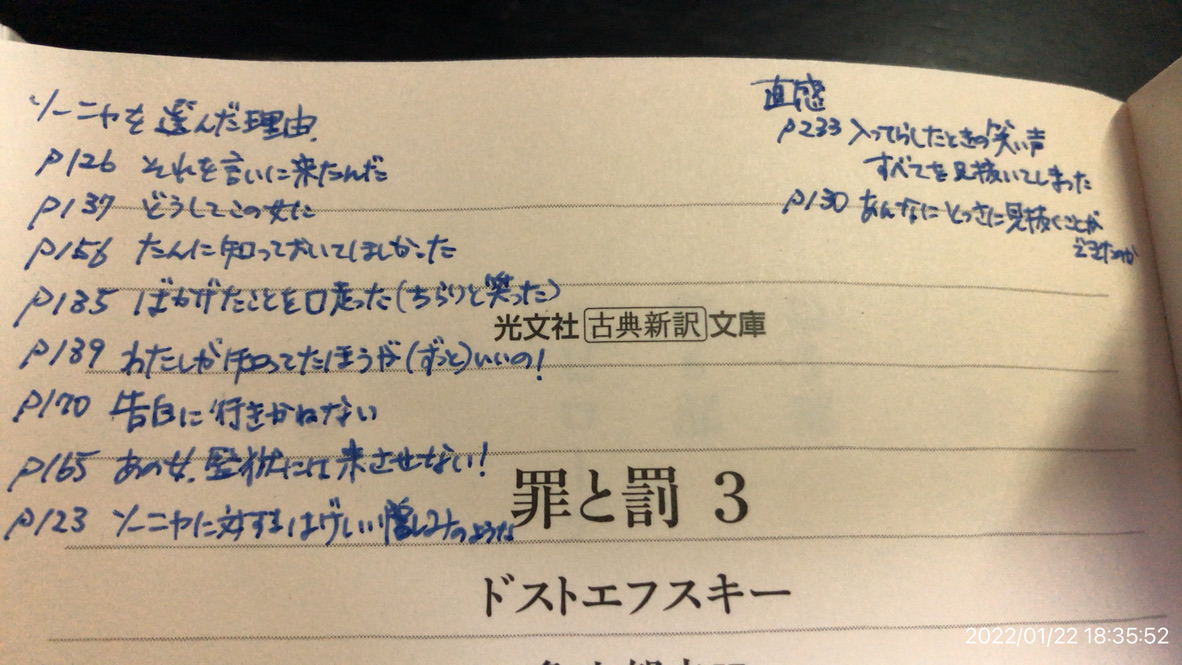 ソーニャを選んだ理由.
p126 それを言いに来たんだ
p137 どうしてこの女に
p156 たんに知っておいてほしかった
p135 ばかげたことを口走った(ちらりと笑った)
p139 わたしが知ってたほうが(ずっと)いいの!
p170 告白に行きかねない
p165 あの女、監獄には来させない!
p123 ソーニャに対するはげしい憎しみのような
直感
p233 入ってらしたときの笑い声
すべてを見抜いてしまった
p130 あんなにとっさに見抜くことが
できたのか
光文社古典新訳文庫
罪と罰 3
ドストエフスキー
2022/01/22 18:35:52